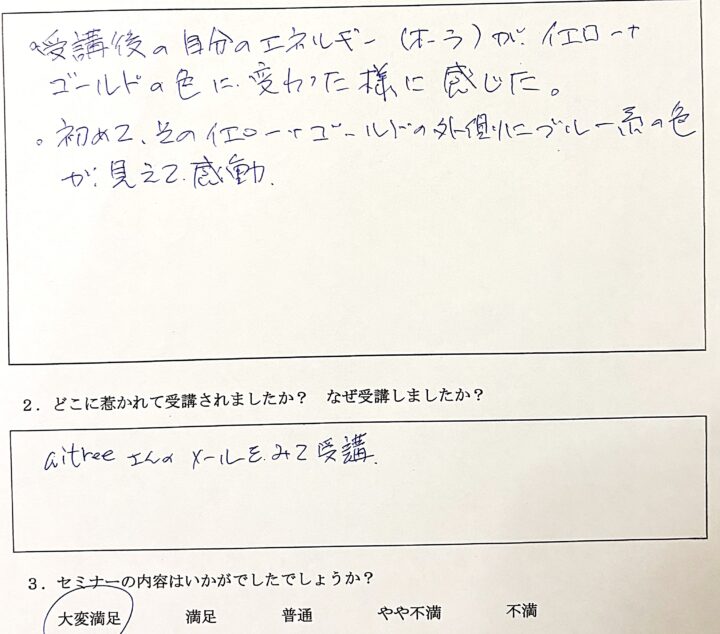 。受講後の自分のエネルギー(オーラ)が、イエロー+
ゴールドの色に変わった様に感じた。
。初めて、そのイエロー+ゴールドの外側にブルー系の色
が見えて感動.
2．どこに惹かれて受講されましたか？　なぜ受講しましたか？
aitree さんの メールを みて 受講.
3．セミナーの内容はいかがでしたでしょうか？
大変満足　満足　普通　やや不満　不満